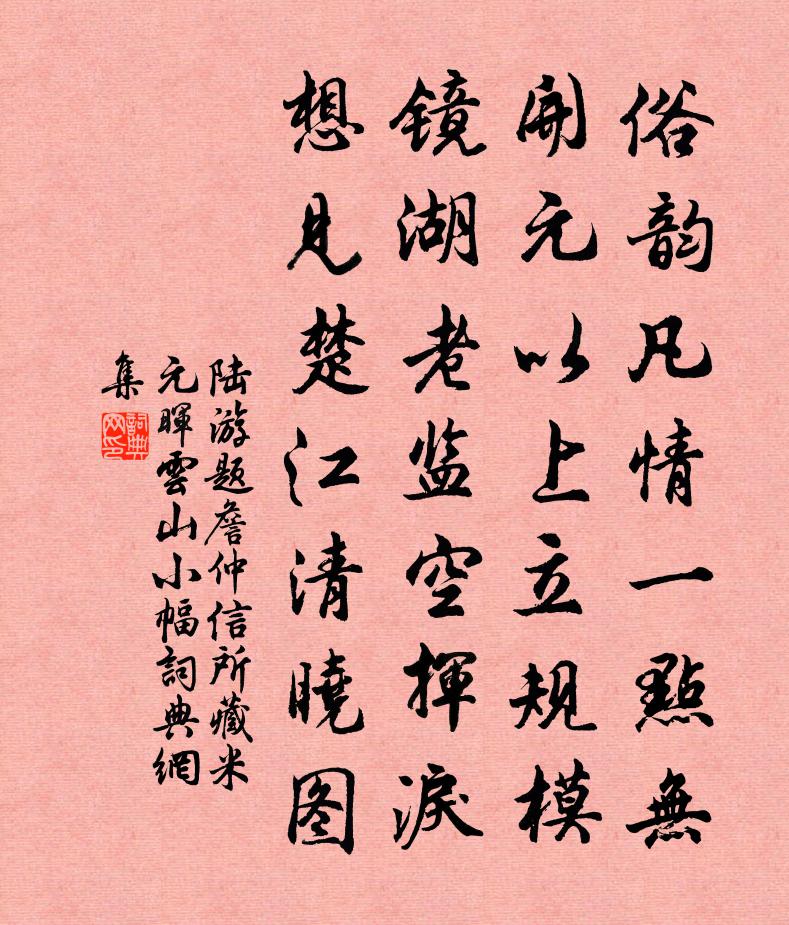 俗韵凡情一點無
開元以上立规模
镜湖老监空揮淚
想見楚江清曉图
陆游题詹仲信所藏米
元暉雲山小幅詞典網
集
詞典网印